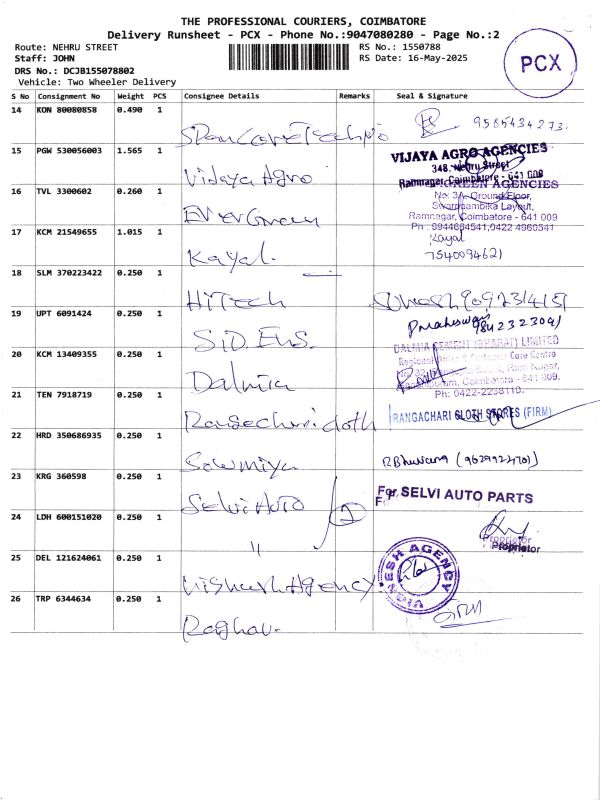 THE PROFESSIONAL COURIERS, COIMBATORE
Delivery Runsheet - PCX - Phone No.:9047080280 - Page No.:2
Route: NEHRU STREET
RS No.: 1550788
Staff: JOHN
RS Date: 16-May-2025
DRS No.: DCJB155078802
Vehicle: Two Wheeler Delivery
PCX
S No Consignment No Weight PCS Consignee Details Remarks Seal & Signature
14 KON 80080858 0.490 1
9585434273.
15 PGW 530056003 1.565 1 Vijaya Agro
VIJAYA AGRO AGENCIES
348, Nehru Street
Ramnagar, Coimbatore - 641 009
16 TVL 3300602 0.260 1 EverGreen
EVERGREEN AGENCIES
No: 3A, Ground Floor,
Swarnambika Layout,
Ramnagar, Coimbatore - 641 009
Ph : 9944664541,0422 4960541
17 KCM 21549655 1.015 1 Kayal.
Kayal
7540094621
18 SLM 370223422 0.250 1 HiTech
19 UPT 6091424 0.250 1 SiD. Ens.
20 KCM 13409355 0.250 1 Dalmia
DALMIA CEMENT (BHARAT) LIMITED
Coimbatore - 641 009.
Ph: 0422-2238110.
21 TEN 7918719 0.250 1 Rangachari cloth
RANGACHARI CLOTH STORES (FIRM)
22 HRD 350686935 0.250 1 Sowmiya
23 KRG 360598 0.250 1 Selvi Auto
2
For SELVI AUTO PARTS
Proprietor
24 LDH 600151020 0.250 1 "
25 DEL 121624061 0.250 1 Vignesh Agency
VIGNESH AGENCY
INDIA
26 TRP 6344634 0.250 1 Raghav.